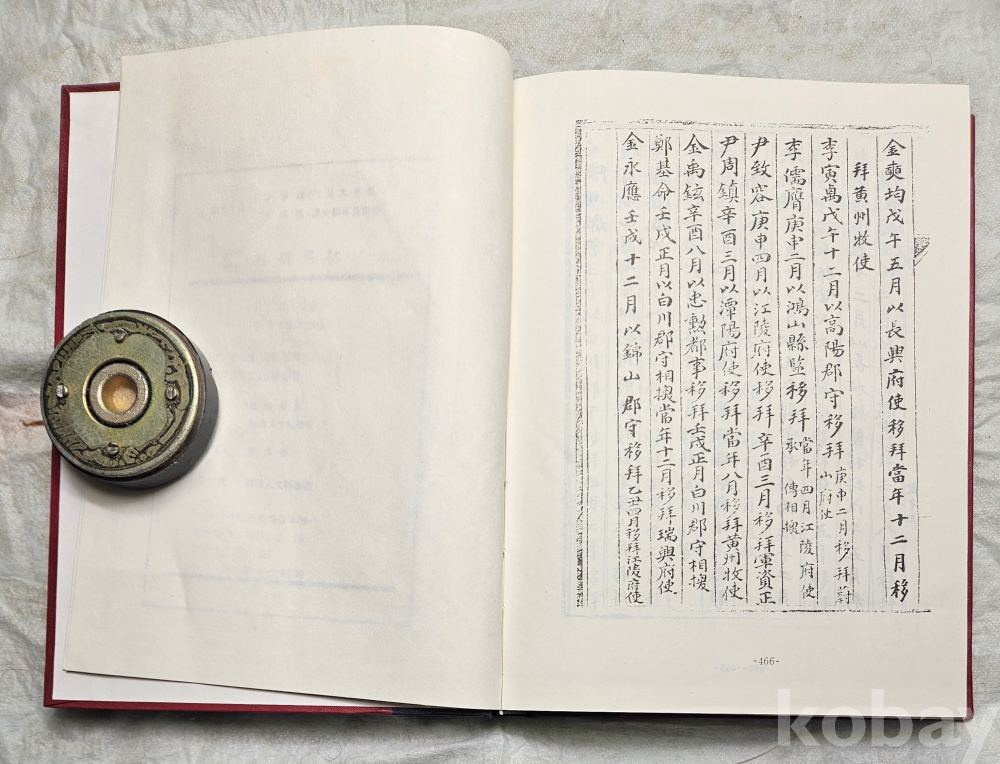 金奭均戊午五月以長興府使移拜當年十二月移
拜黃州牧使
李寅禼戊午十二月以高陽郡守移拜庚申二月移拜蔚
山府使
李儒膺庚申二月以鴻山縣監移拜當年四月江陵府使
承傳相換
尹致容庚申四月以江陵府使移拜辛酉三月移拜軍資正
尹周鎮辛酉三月以潭陽府使移拜當年八月移拜黃州牧使
金禹鉉辛酉八月以忠勲都事移拜壬戌正月白川郡守相換
鄭基命壬戌正月以白川郡守相換當年十二月移拜瑞興府使
金永應壬戌十二月以錦山郡守移拜乙丑四月移拜江陵府使
-466-
kobay